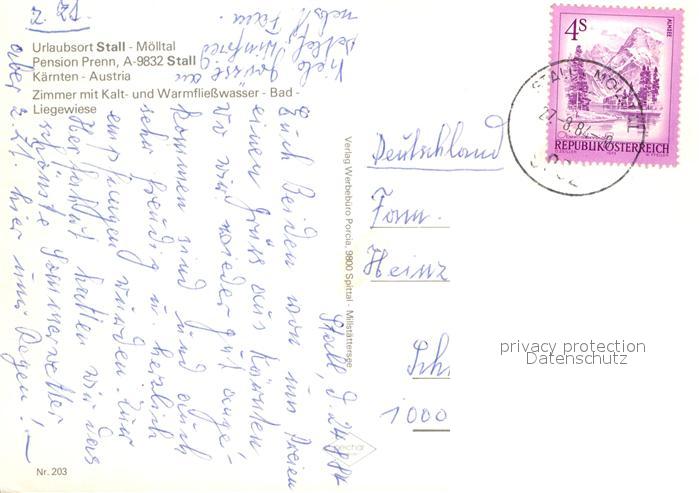 Urlaubsort Stall - Mölltal
Pension Prenn, A-9832 Stall
Kärnten - Austria
Zimmer mit Kalt- und Warmfließwasser - Bad -
Liegewiese
Stall, d. 24.8.84
Euch Beiden von uns Dreien
einen Gruss aus Kärnten
wo wir wieder gut ange-
kommen sind und auch
sehr freudig u. herzlich
empfangen wurden. Zur
Herfahrt hatten wir das
schönste Sommerwetter
aber z. Zt. hier nur Regen! —
Viele Grüsse an
Detlef, Winfried
nebst Fam.
z. Zt.
Verlag Werbebüro Porcia, 9800 Spittal - Millstättersee
Nr. 203
4S
ALMSEE
REPUBLIK ÖSTERREICH
STALL MÖLLTAL
27.8.84
9832
Deutschland
Fam.
Heinz
Sch.
1000
privacy protection
Datenschutz